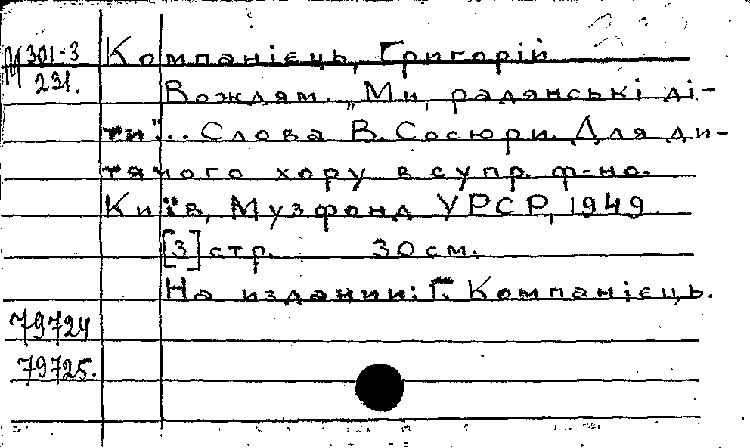 М 301-3
231.
Компанієць, Григорій
Вождям. „Ми, радянські ді-
ти"... Слова В. Сосюри. Для ди-
тячого хору в супр. ф-но.
Київ, Музфонд УРСР, 1949
[3] стр. 30 см.
На издании: Г. Компанієць.
79724
79725.